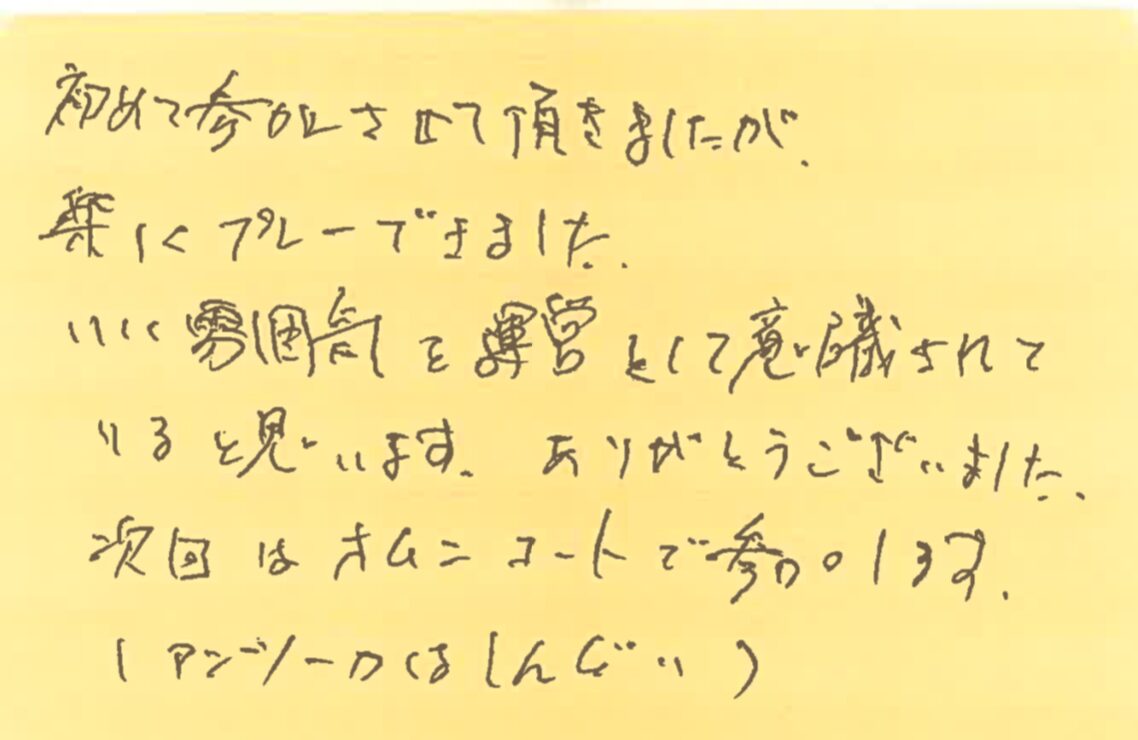 初めて参加させて頂きましたが、
楽しくプレーできました。
いい雰囲気を運営として意識されて
いると思います。ありがとうございました。
次回はオムニコートで参加します。
(アンツーカはしんどい)